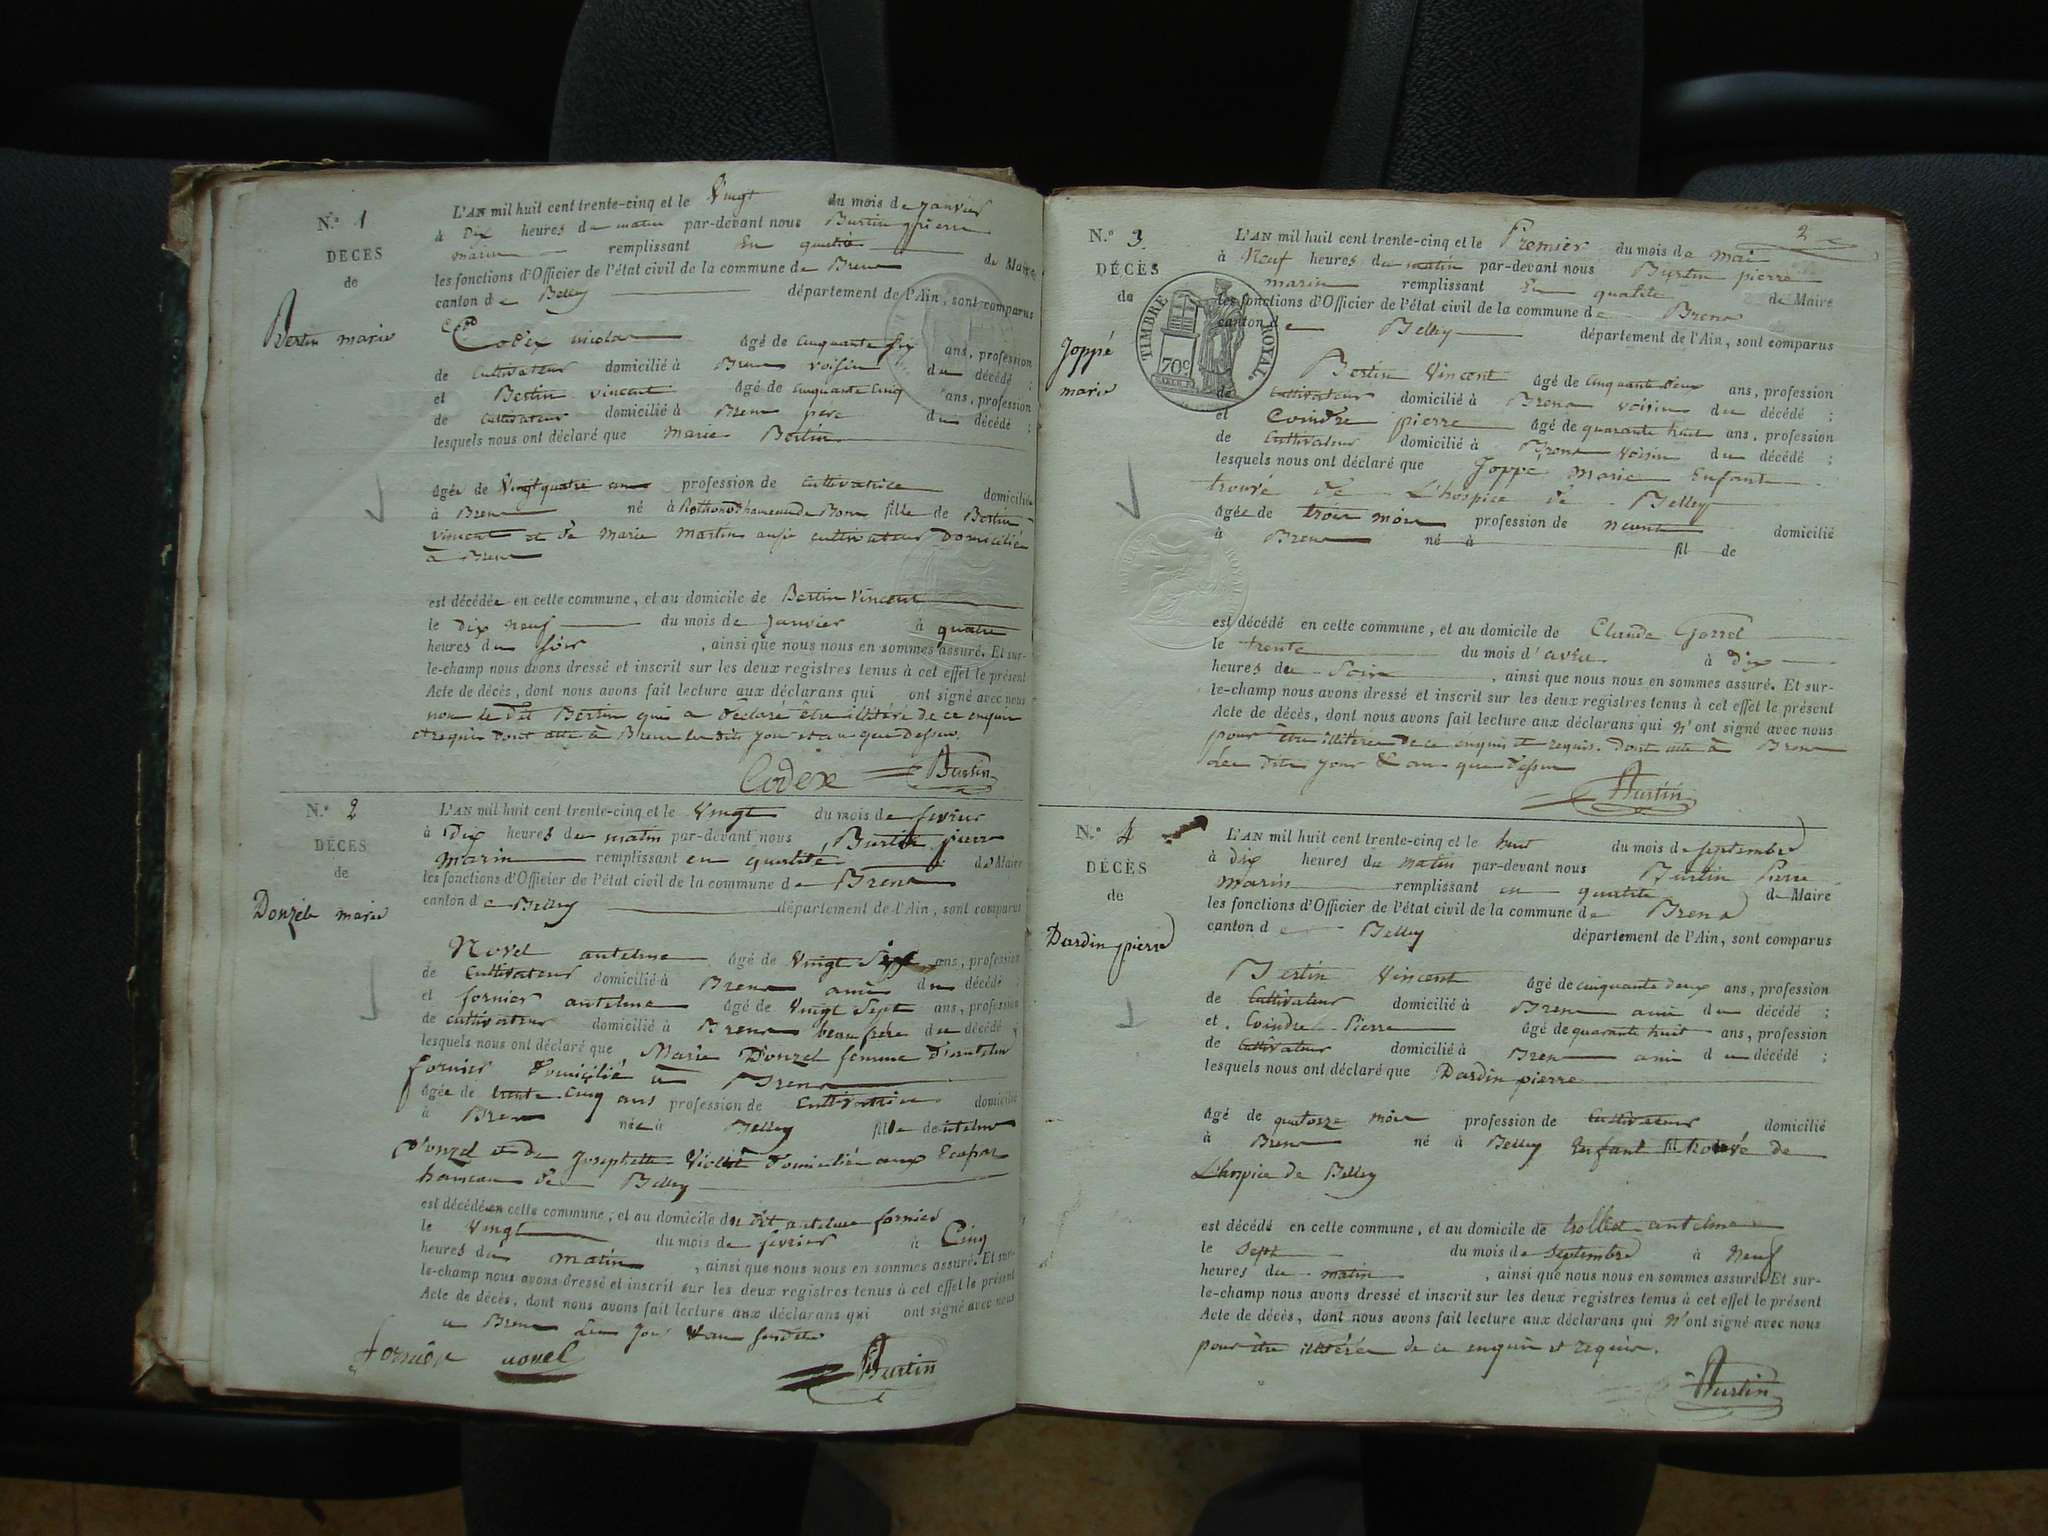 N.° 1
DÉCÈS
de
Bertin marie
L'AN mil huit cent trente-cinq et le Vingt du mois de janvier
à Dix heures de matin par-devant nous Burtin pierre
marin remplissant En qualité de Maire
les fonctions d'Officier de l'état civil de la commune de Brens
canton de Belley département de l'Ain, sont comparus
Codex nicolas âgé de cinquante six ans, profession
de cultivateur domicilié à Brens voisin du décédé ;
et Bertin vincent âgé de cinquante cinq ans, profession
de cultivateur domicilié à Brens pere du décédé ;
lesquels nous ont déclaré que marie Bertin
âgée de Vingt quatre ans profession de cultivatrice domicilié
à Brens né à fille de Bertin
vincent et de marie martin aussi cultivateur Domicilié
à Brens
est décédée en cette commune, et au domicile de Bertin Vincent
le dix neuf du mois de janvier à quatre
heures du soir, ainsi que nous nous en sommes assuré. Et sur-
le-champ nous avons dressé et inscrit sur les deux registres tenus à cet effet le présent
Acte de décès, dont nous avons fait lecture aux déclarans qui ont signé avec nous
non le dit Bertin qui a déclaré être illitéré de ce enquis
et requis dont acte à Brens les dits jour et an que dessus.
Codex Burtin
N.° 2
DÉCÈS
de
Donzel marie
L'AN mil huit cent trente-cinq et le Vingt du mois de fevrier
à Dix heures du matin par-devant nous Burtin pierre
marin remplissant en qualité de Maire
les fonctions d'Officier de l'état civil de la commune de Brens
canton de Belley département de l'Ain, sont comparus
Novel antelme âgé de Vingt Sept ans, profession
de cultivateur domicilié à Brens ami du décédé ;
et fornier antelme âgé de Vingt Sept ans, profession
de cultivateur domicilié à Brens beaufrère du décédé ;
lesquels nous ont déclaré que Marie Donzel femme d'antelme
fornier domicilié à Brens
âgée de trente cinq ans profession de cultivatrice domicilié
à Brens née à Belley fille de antelme
Donzel et de Josephette Violet domicilié aux Ecassaz
hameau de Belley
est décédée en cette commune, et au domicile du dit antelme fornier
le vingt du mois de fevrier à Cinq
heures du matin, ainsi que nous nous en sommes assuré. Et sur-
le-champ nous avons dressé et inscrit sur les deux registres tenus à cet effet le présent
Acte de décès, dont nous avons fait lecture aux déclarans qui ont signé avec nous
a Brens les jour et an susdits
fornier novel Burtin
2
N.° 3
DÉCÈS
de
Joppé
marie
TIMBRE ROYAL.
70c
L'AN mil huit cent trente-cinq et le Premier du mois de mai
à Neuf heures du matin par-devant nous Burtin pierre
marin remplissant En qualité de Maire
les fonctions d'Officier de l'état civil de la commune de Brens
canton de Belley département de l'Ain, sont comparus
Bertin Vincent âgé de cinquante deux ans, profession
de cultivateur domicilié à Brens voisin du décédé ;
et Coindre pierre âgé de quarante huit ans, profession
de cultivateur domicilié à Brens voisin du décédé ;
lesquels nous ont déclaré que Joppé Marie Enfant
trouvé de L'hospice de Belley
âgée de trois mois profession de domicilié
à Brens né à fil de
est décédé en cette commune, et au domicile de Claude
le trente du mois d'avril à dix
heures du Soir, ainsi que nous nous en sommes assuré. Et sur-
le-champ nous avons dressé et inscrit sur les deux registres tenus à cet effet le présent
Acte de décès, dont nous avons fait lecture aux déclarans qui n'ont signé avec nous
pour être illitérés de ce enquis et requis. Dont acte à Brens
les dits jour & an que dessus
Burtin
N.° 4
DÉCÈS
de
Dardin pierre
L'AN mil huit cent trente-cinq et le huit du mois de septembre
à dix heures du matin par-devant nous Burtin Pierre
marin remplissant en qualité de Maire
les fonctions d'Officier de l'état civil de la commune de Brens
canton de Belley département de l'Ain, sont comparus
Bertin Vincent âgé de cinquante deux ans, profession
de cultivateur domicilié à Brens ami du décédé ;
et Coindre Pierre âgé de quarante huit ans, profession
de cultivateur domicilié à Brens ami du décédé ;
lesquels nous ont déclaré que Dardin pierre
âgé de quatorze mois profession de cultivateur domicilié
à Brens né à Belley Enfant fil trouvé de
L'hospice de Belley
est décédé en cette commune, et au domicile de trollet antelme
le sept du mois de septembre à neuf
heures du matin, ainsi que nous nous en sommes assuré. Et sur-
le-champ nous avons dressé et inscrit sur les deux registres tenus à cet effet le présent
Acte de décès, dont nous avons fait lecture aux déclarans qui n'ont signé avec nous
pour être illitérés de ce enquis et requis.
Burtin